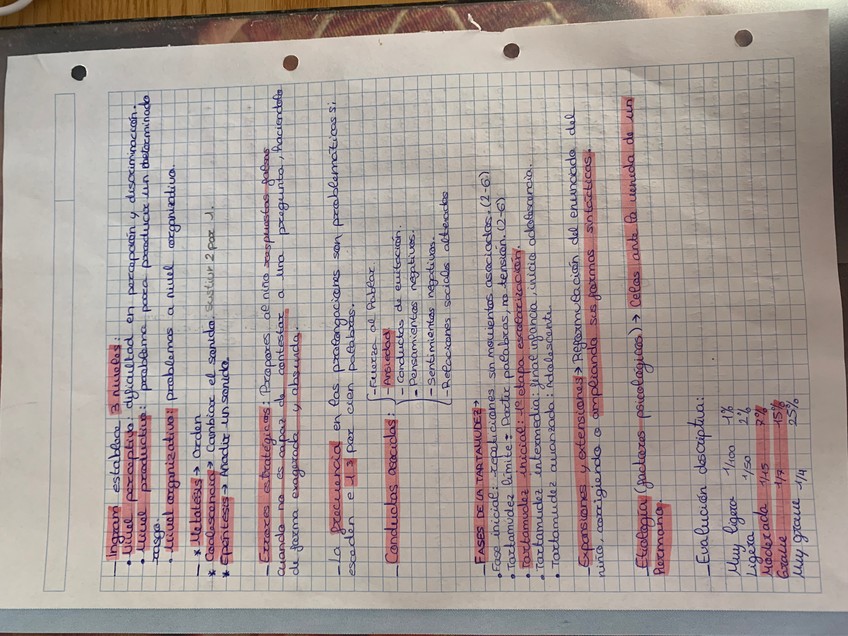 - Ingram establece 3 niveles:
• Nivel perceptivo: dificultad en percepción y discriminación.
• Nivel productivo: problema para producir un determinado
rasgo.
• Nivel organizativo: problemas a nivel organizativo.
- * Metátesis → Orden
* Coalescencia → Cambiar el sonido. sustiur 2 por 1.
* Epéntesis → Añadir un sonido.
- Errores estratégicos: Proponer al niño respuestas falsas
cuando no es capaz de contestar a una pregunta, haciéndolo
de forma exagerada y absurda.
- La frecuencia en las prolongaciones son problemáticas si
exceden el por cien palabras.
- Fuerza al hablar
- Conductas asociadas: - Ansiedad
- Conductas de evitación.
- Pensamientos negativos.
- Sentimientos negativos.
- Relaciones sociales alteradas
- FASES DE LA TARTAMUDEZ →
• Fase inicial: repeticiones sin movimientos asociados. (2-6)
• Tartamudez límite: Partir palabras, no tensión. (2-6)
• Tartamudez inicial: 1º etapa escolarización.
• Tartamudez intermedia: final infancia inicio adolescencia.
• Tartamudez avanzada: Adolescente.
- Expansiones y extensiones → Reformulación del enunciado del
niño, corrigiendo o ampliando sus formas sintácticas.
- Etiología (factores psicológicos) → Celos ante la venida de un
hermano.
- Evaluación descriptiva:
Muy ligera 1/100 1%
Ligera 1/50 2%
Moderada 1/15 7%
Grave 1/7 15%
Muy grave 1/4 25%